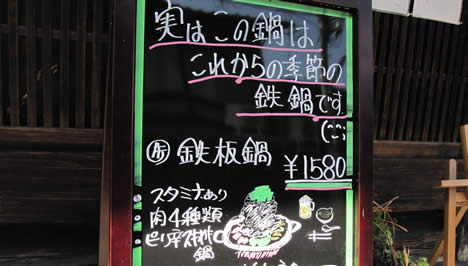 実はこの鍋は
これからの季節の
鉄鍋です。
鉄板鍋
¥1580
スタミナあり
肉4種類
鍋